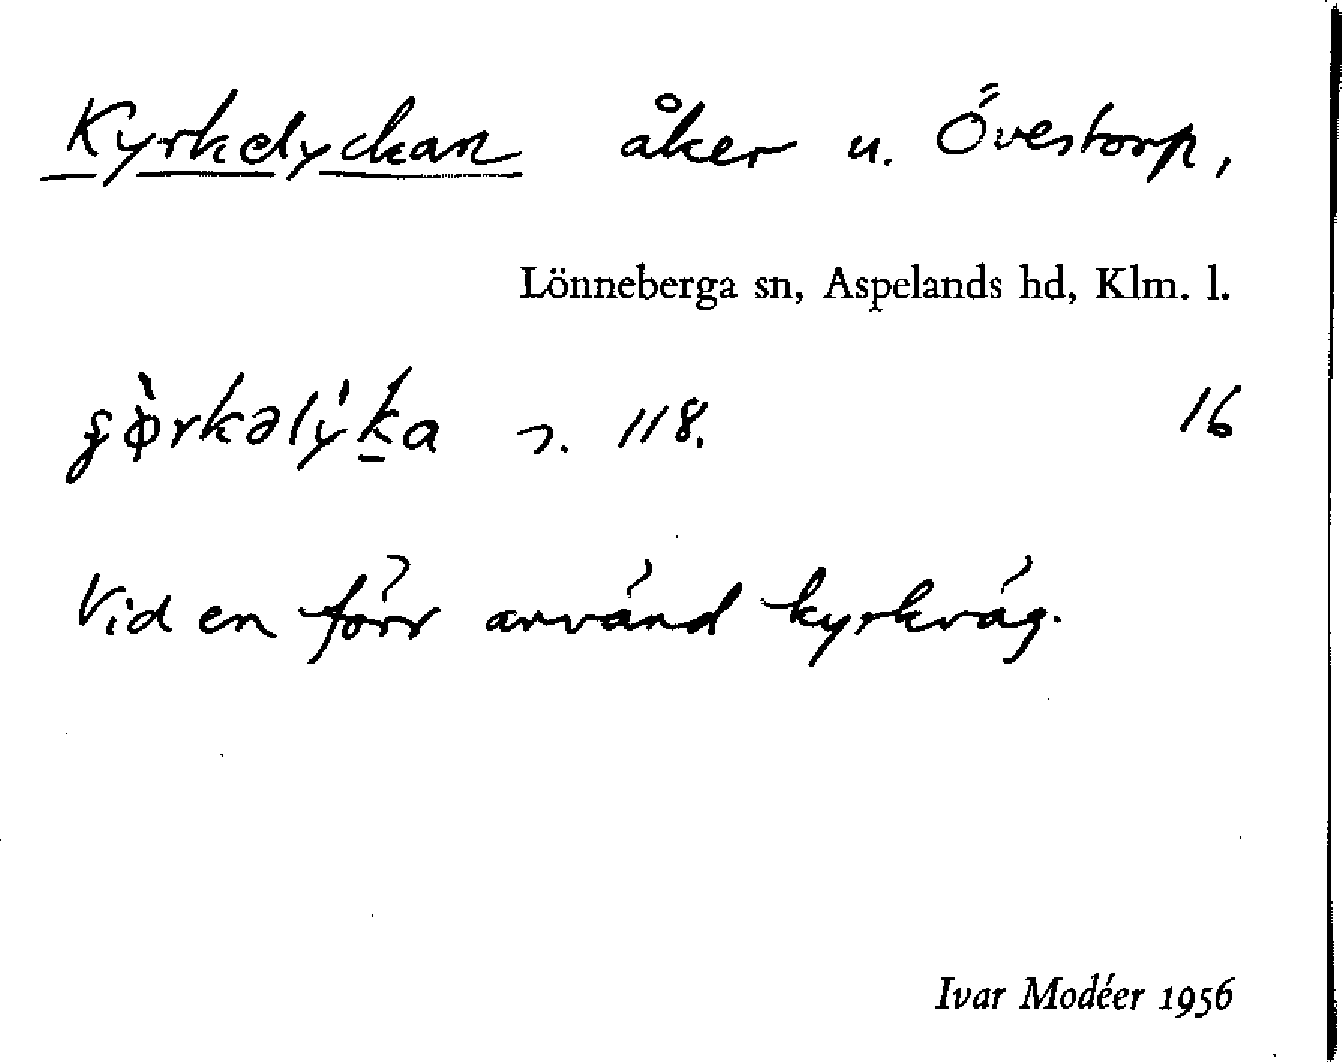 Kyrkelyckan åker u. Övestorp,
Lönneberga sn, Aspelands hd, Klm. l.
s. 118. 16
Vid en förr använd kyrkväg.
Ivar Modéer 1956